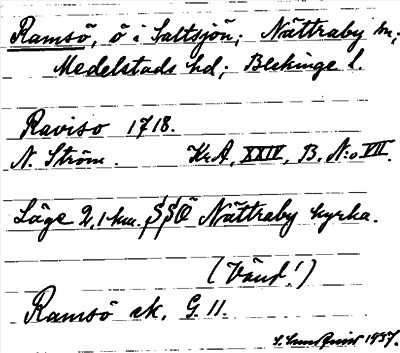 Ramsö, ö i Saltsjön; Nättraby sn;
Medelstads hd; Blekinge l.
Raviso 1718.
N. Ström. KrA, XXIV, B. N:o VII.
Läge 2,1 km. SSÖ Nättraby kyrka.
(Vänd!)
Ramsö ek. G. 11.
S. Sundquist 1937.